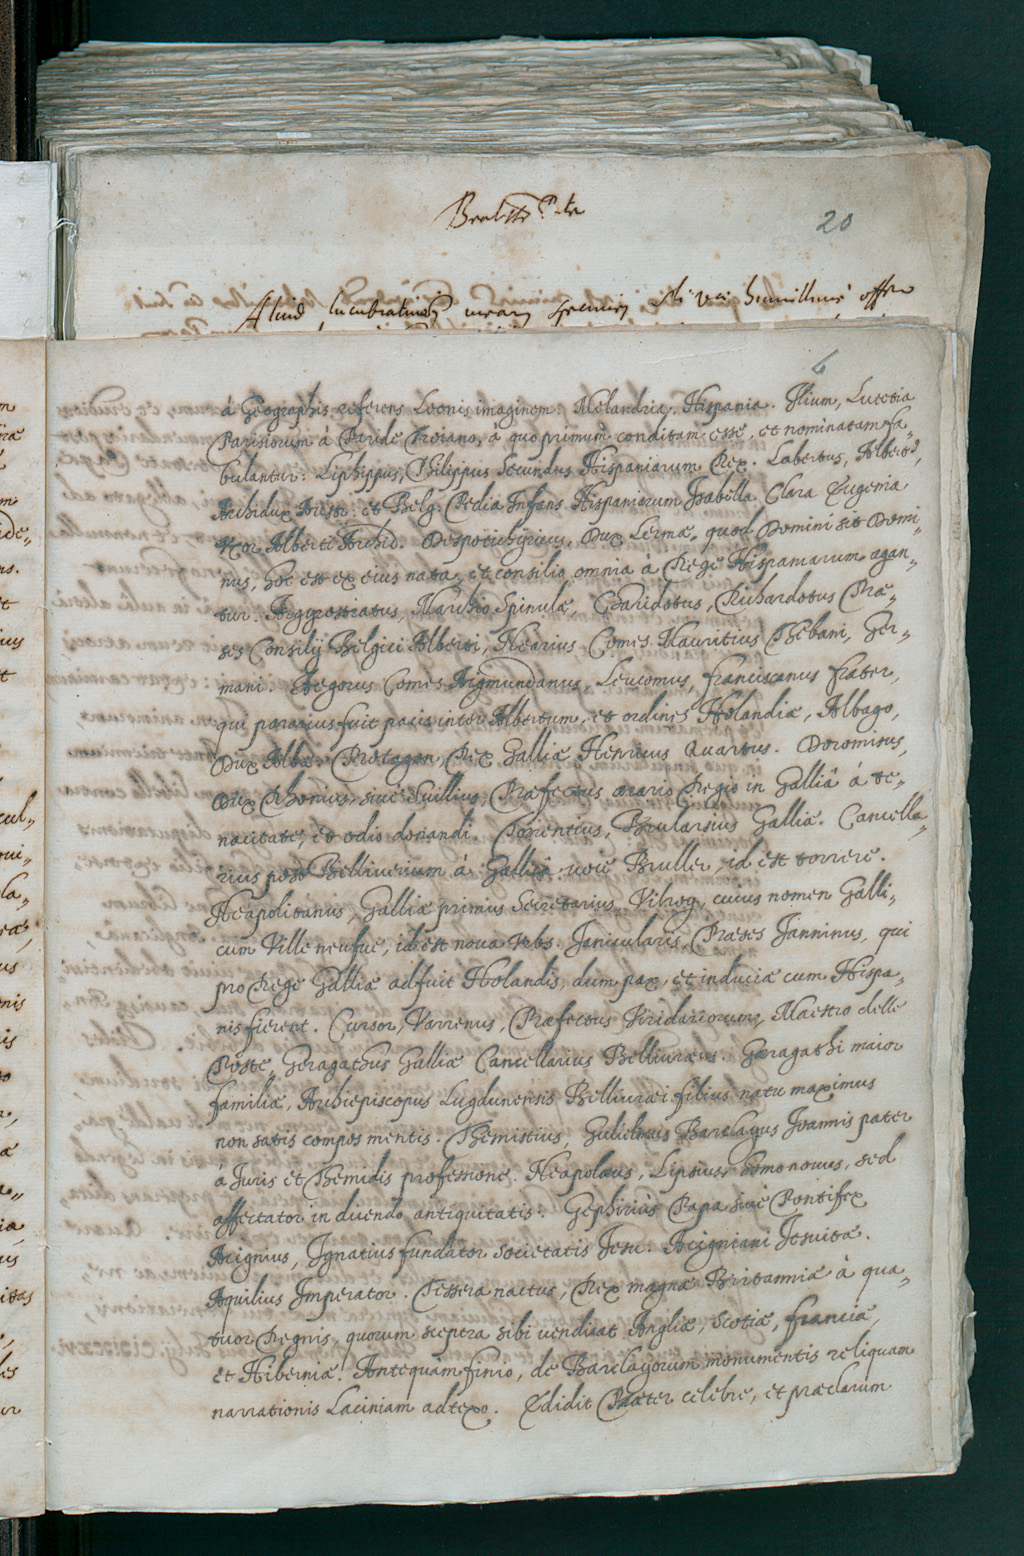 20
Aliud lucubrationū mearū specimen humillimè offero
6
à Geographis referens Leonis imaginem. Melandria, Hispania. Ilium, Lutetia
Parisiorum à Paride Troiano, à quo primum conditam esse, et nominatam fa„
bulantur: Liphippus, Philippus Secundus Hispaniarum Rex. Labertus, Albertus,
Archidux Austr: et Belg. Pedia Infans Hispaniarum Isabella Clara Eugenia
Vxor Alberti Archid. Despotichyricus, Dux Lermæ, quod Domini sit Domi„
nus, hoc est ex eius nata, et consilio omnia à Rege Hispaniarum agan„
tur. Argyrostratus, Marchio Spinulæ, Gdaridotus, Richardotus Præ„
ses Consilij Belgici Alberti, Nearius, Comes Mauritius Thebani, Ger„
mani. Aegorus Comes Aigmundanus, Leucomus, franciscanus frater,
qui pararius fuit pacis inter Albertum, et ordines Holandiæ, Albago,
Dux Albæ. Protagon, Rex Galliæ Henricus Quartus. Doromisus,
Dux Rhonius, siue Suillius, Præfectus ærario Regio in Galliâ à te„
nacitate, et odio donandi. Torrentius, Brulartius Galliæ. Cancella„
rius post Bellivrium à Gallica uoce Bruller, id est torrere.
Neapolitanus, Galliæ primius Secretarius Vilroy, cuius nomen Galli„
cum Ville neufue, id est noua Vrbs. Janicularis, Præses Janninus, qui
pro Rege Galliæ adfuit Holandis, dum pax, et induciæ cum Hispa„
nis fierent. Cursor, Varrenus, Præfectus Viridariorum, Maestro delle
Poste, Geragathus Galliæ Cancellarius Belliuræus. Geragathi maior
familiæ, Archiepiscopus Lugdunensis Belliuræi filius natu maximus
non satis compos mentis. Themistius, Gulielmus Barclayus Joannis pater
à Juris et Themidis professione. Neapolæus, Lipsius, homo nouus, sed
affectator in dicendo antiquitatis. Gephirius Papa siue Pontifex
Acignius, Ignatius fundator societatis Jesu. Acigniani Jesuitæ.
Aquilius Imperator. Tessera nactus, Rex magnæ Britanniæ à qua„
tuor Regnis, quorum sceptra sibi uendicat Angliæ, Scotiæ, franciæ,
et Hiberniæ. Antequam finio, de Barclayorum monumentis reliquam
narrationis Laciniam adtexo. Edidit Pater celebre, et præclarum